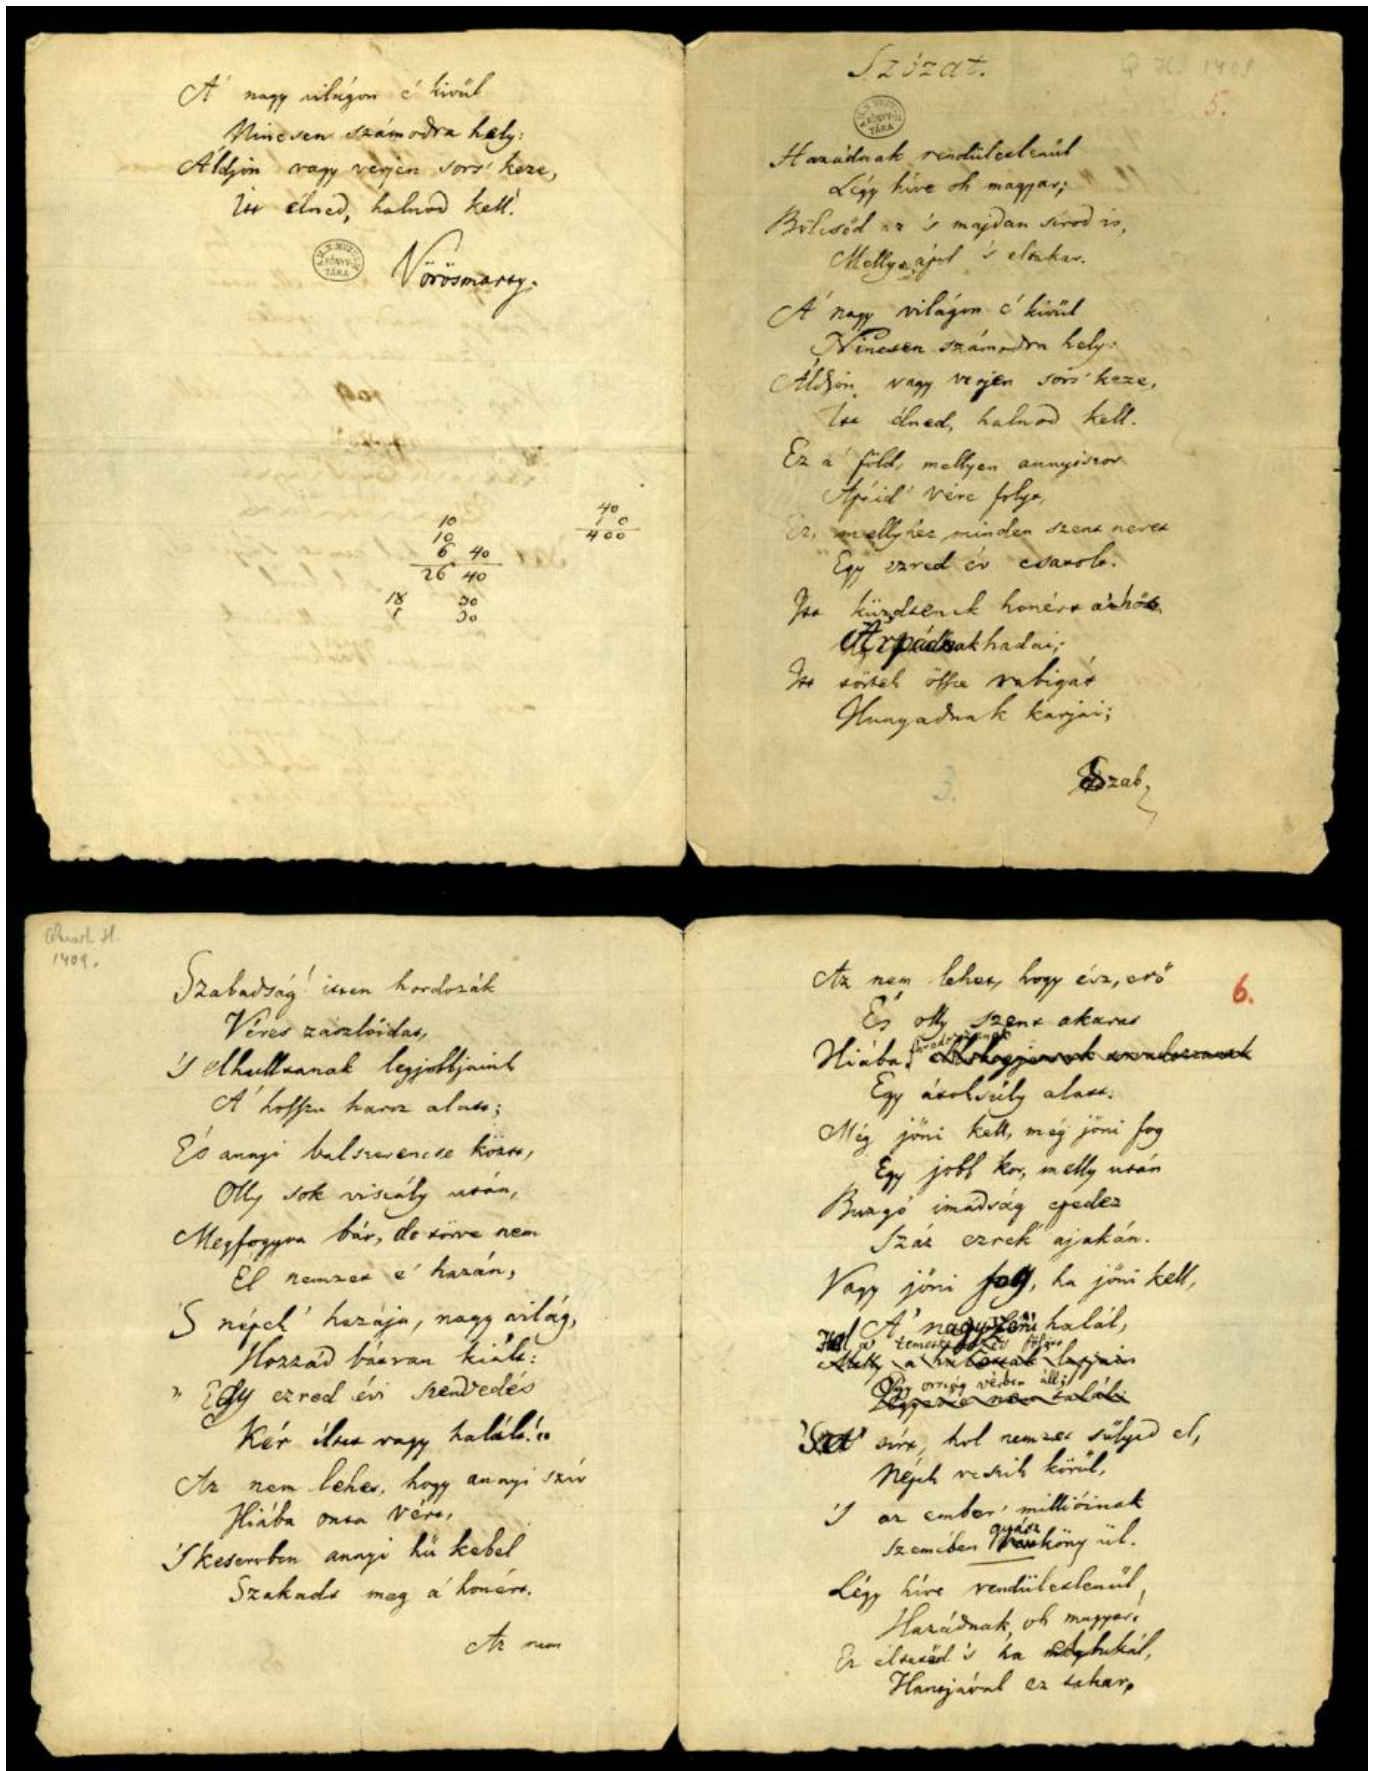 A' nagy világon e' kivűl
Nincsen számodra hely:
Áldjon vagy verjen sors' keze,
Itt élned, halnod kell.
M. N. MUZEUM KÖNYV-TÁRA
Vörösmarty.
10
10
6 40
26 40
18 30
30
40
10
400
Szózat.
Q H. 1409
5.
KÖNYV-TÁRA
Hazádnak rendületlenűl
Légy híve oh magyar;
Bölcsőd az 's majdan sírod is,
Melly ápol 's eltakar.
A' nagy világon e' kivűl
Nincsen számodra hely:
Áldjon vagy verjen sors' keze,
Itt élned, halnod kell.
Ez a' föld, mellyen annyiszor
Apáid' vére folyt,
Ez, mellyhez minden szent nevet
Egy ezred év csatolt.
Itt küzdtenek honért a' hős
Árpádnak hadai;
Itt törtek össze rabigát
Hunyadnak karjai;
3.
Szab,
Quart. H.
1409.
Szabadság! itten hordozák
Véres zászlóidat,
'S elhulltanak legjobbjaink
A' hosszu harcz alatt;
És annyi balszerencse közt,
Olly sok viszály után,
Megfogyva bár, de törve nem
Él nemzet e' hazán,
'S népek' hazája, nagy világ,
Hozzád bátran kiált:
" Egy ezred évi szenvedés
Kér éltet vagy halált!"
Az nem lehet, hogy annyi szív
Hiába onta vért,
'S keservben annyi hű kebel
Szakadt meg a' honért.
Az nem
6.
Az nem lehet, hogy ész, erő
És olly szent akarat
Hiába sorvadozzanak
Egy átoksúly alatt.
Még jőni kell, még jőni fog
Egy jobb kor, melly után
Buzgó imádság epedez
Száz ezrek' ajakán.
Vagy jőni fog, ha jőni kell,
A' nagyszerű halál,
Hol a' temetkezés fölött
Egy ország vérben áll;
'S a' sírt, hol nemzet sülyed el,
Népek veszik körűl,
'S az ember' millióinak
Szemében gyász köny űl.
Légy híve rendületlenűl,
Hazádnak, oh magyar:
Ez éltetőd 's ha elbukál,
Hantjával ez takar,